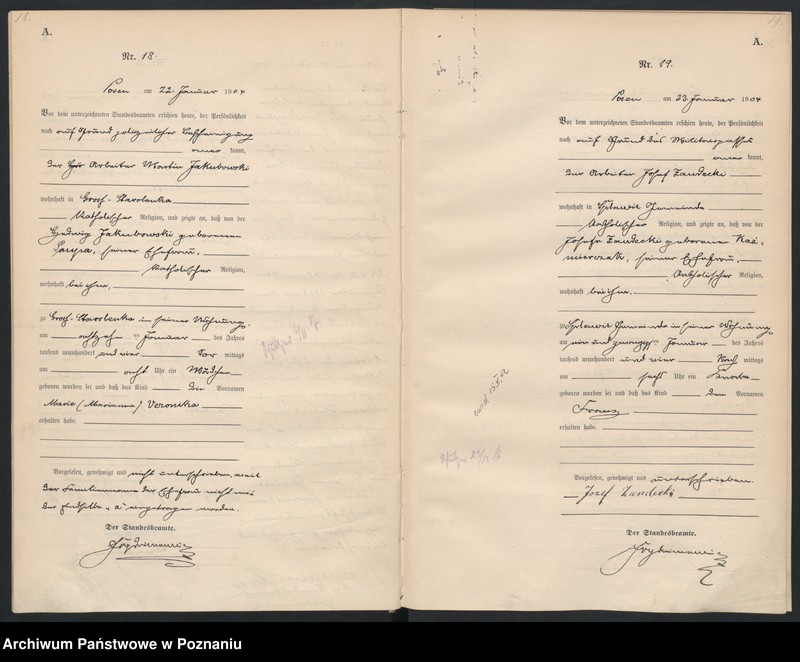 18.
A.
Nr. 18
Posen am 22. Januar 1904
Vor dem unterzeichneten Standesbeamten erschien heute, der Persönlichkeit
nach auf Grund polizeilicher Bescheinigung
kannt,
der Arbeiter Martin Jakubowski
wohnhaft in Groß-Starolenka
katholischer Religion, und zeigte an, daß von der
Hedwig Jakubowski geborenen
seiner Ehefrau,
katholischer Religion,
wohnhaft bei ihm,
zu Groß-Starolenka in seiner Wohnung
am achtzehn ten Januar des Jahres
tausend neunhundert und vier Vor mittags
um acht Uhr ein Mädchen
geboren worden sei und daß das Kind die Vornamen
Marie (Marianna) Veronika
erhalten habe.
Vorgelesen, genehmigt und nicht unterschrieben, weil
der Familienname der Ehefrau nicht mit
der Endsilbe "a" eingetragen worden.
Der Standesbeamte.
19.
A.
Nr. 19.
Posen am 23 Januar 1904
Vor dem unterzeichneten Standesbeamten erschien heute, der Persönlichkeit
nach auf Grund des Militärpasses
kannt,
der Arbeiter Josef Zandecki
wohnhaft in Gemeinde
katholischer Religion, und zeigte an, daß von der
Josefa Zandecki geborenen Kaz-
mierczak, seiner Ehefrau,
katholischer Religion,
wohnhaft bei ihm.
zu Gemeinde in seiner Wohnung
am ein und zwanzigsten Januar des Jahres
tausend neunhundert und vier Nach mittags
um sechs Uhr ein Knabe
geboren worden sei und daß das Kind den Vornamen
Franz
erhalten habe.
Vorgelesen, genehmigt und unterschrieben.
Józef Zandecki
Der Standesbeamte.
Archiwum Państwowe w Poznaniu